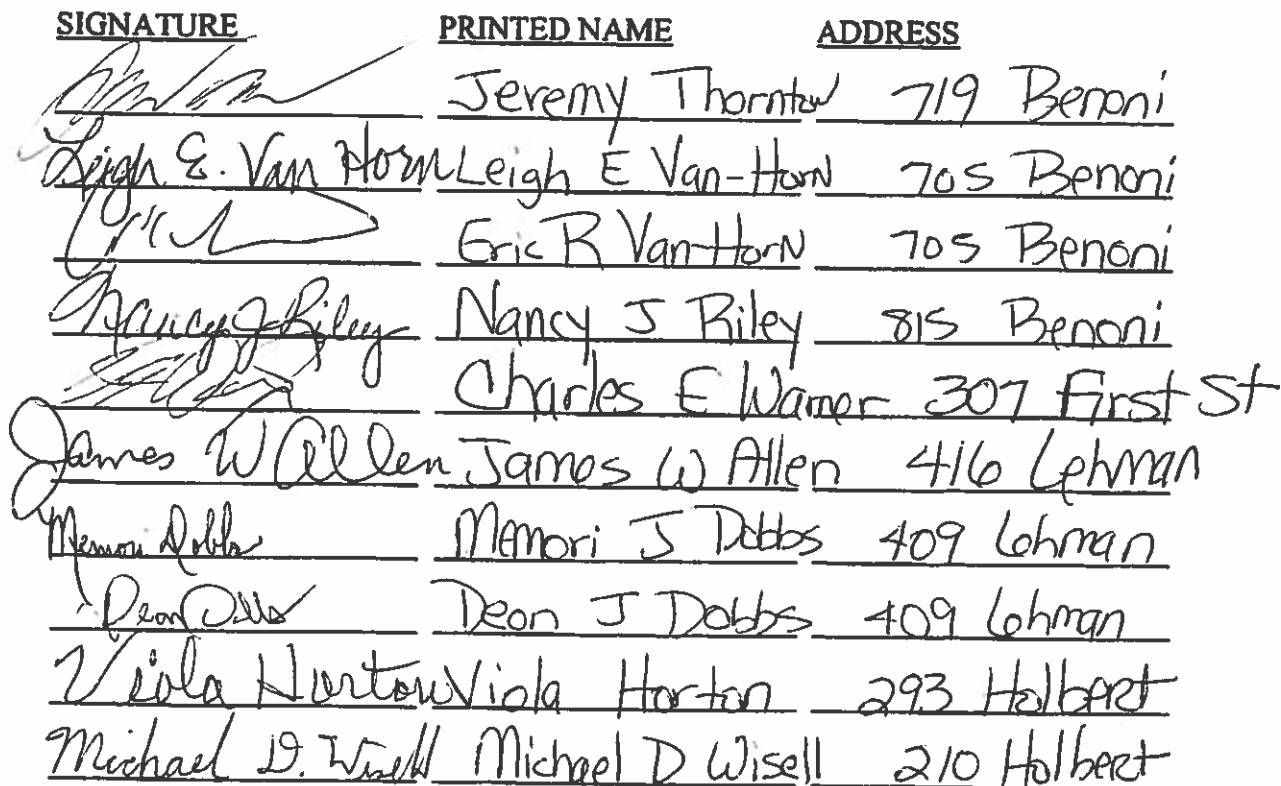 SIGNATURE PRINTED NAME ADDRESS
Jeremy Thornton 719 Benoni
Leigh E. Van Horn Leigh E Van-Horn 705 Benoni
Eric R Van-Horn 705 Benoni
Nancy J Riley Nancy J Riley 815 Benoni
Charles E Warner 307 First St
James W Allen James W Allen 416 Lehman
Memori Dobbs Memori J Dobbs 409 Lehman
Deon Dobbs Deon J Dobbs 409 Lehman
Viola Horton Viola Horton 293 Holbert
Michael D. Wisell Michael D Wisell 210 Holbert